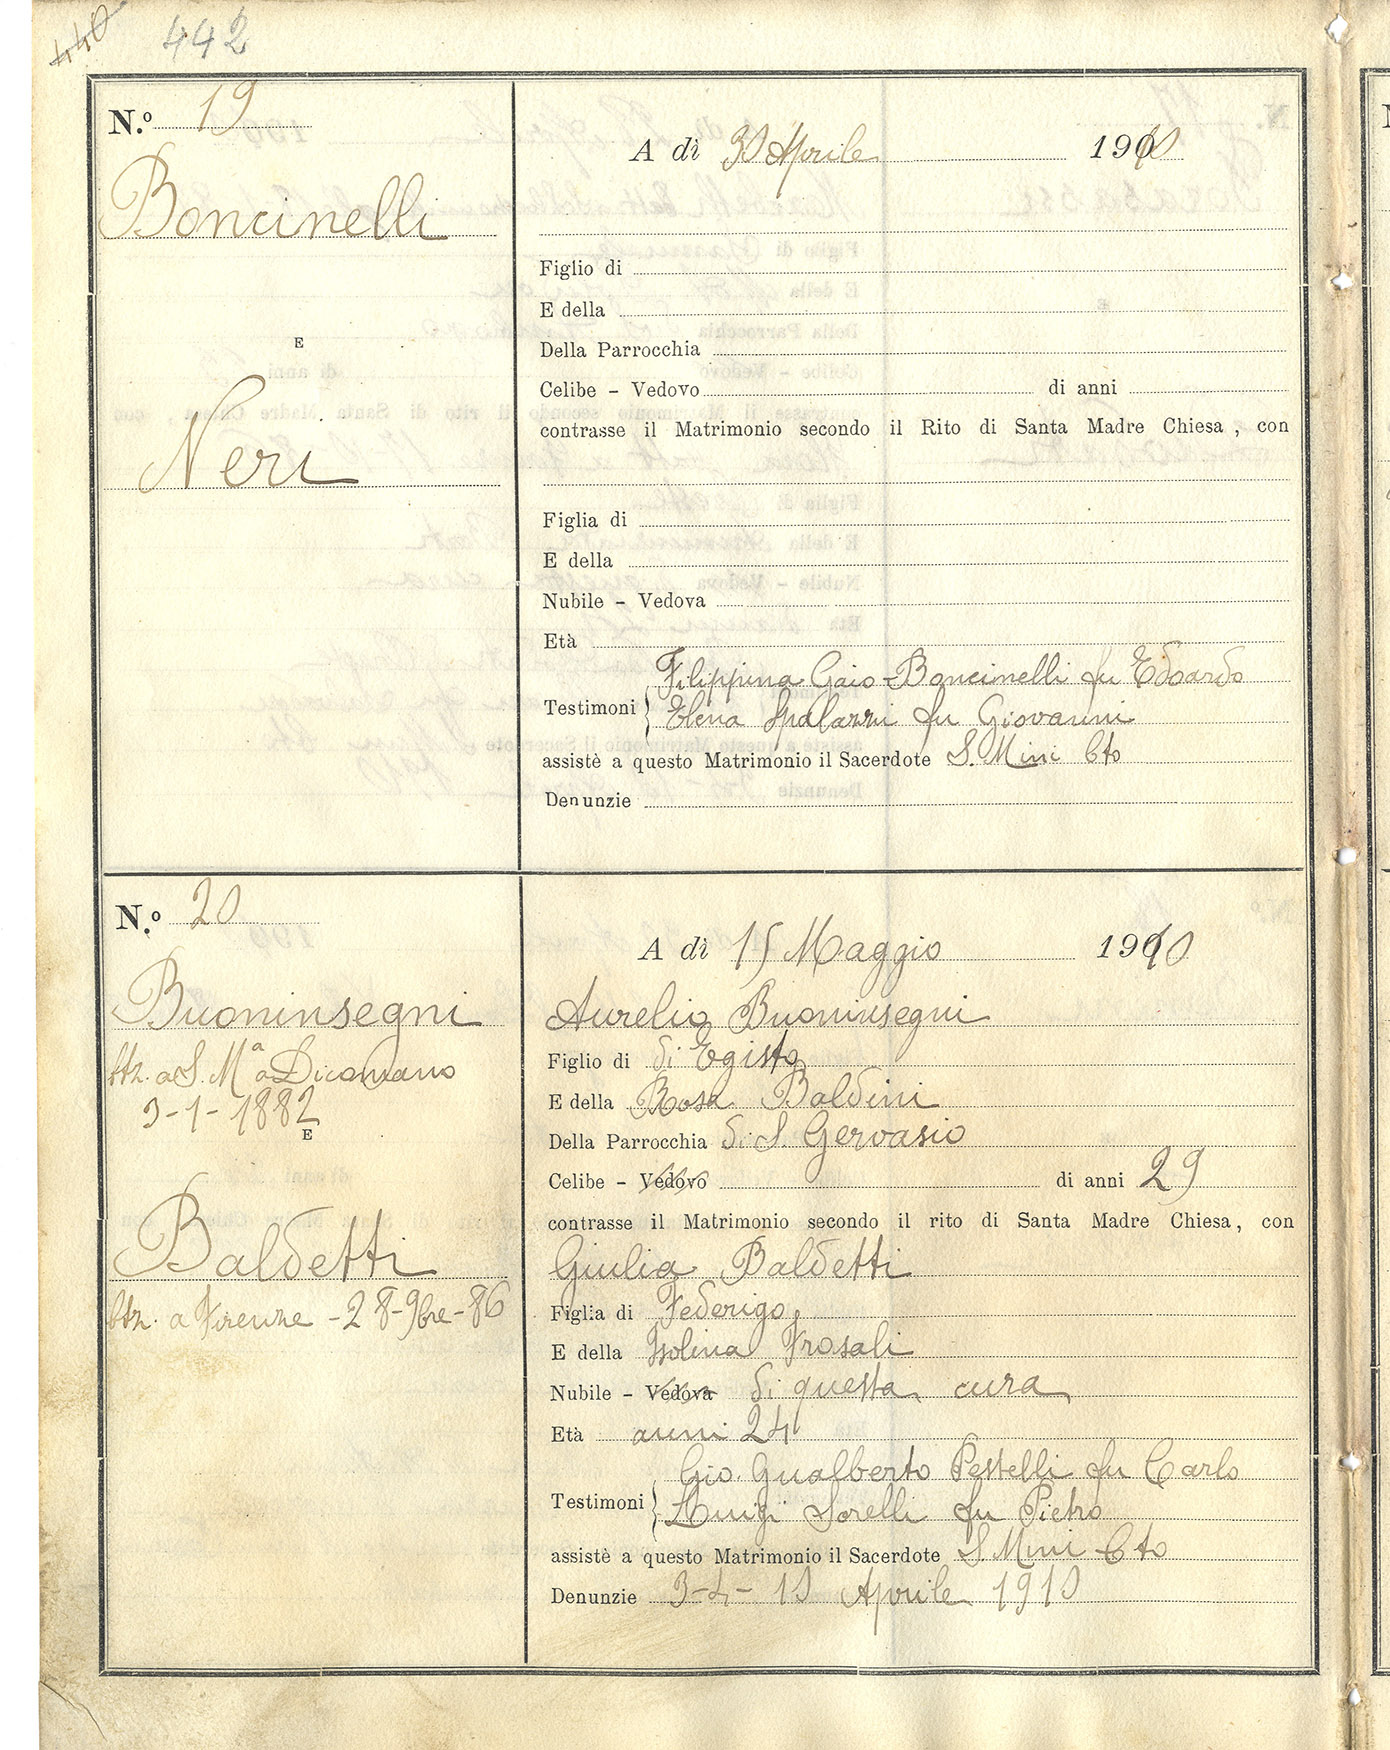 440 442
N.º 19
Boncinelli
E
Neri
A dì 30 Aprile 1910
Figlio di
E della
Della Parrocchia
Celibe – Vedovo di anni
contrasse il Matrimonio secondo il Rito di Santa Madre Chiesa, con
Figlia di
E della
Nubile – Vedova
Età
Filippina Gaio-Boncinelli fu Edoardo
Testimoni { Elena Spalazzi fu Giovanni
assistè a questo Matrimonio il Sacerdote S. Mini Cto
Denunzie
N.º 20
Buoninsegni
btz. a S. Mª a Dicomano
3-1-1882
E
Baldetti
btz. a Firenze - 28-9bre-86
A dì 15 Maggio 1910
Aurelio Buoninsegni
Figlio di di Egisto
E della Rosa Baldini
Della Parrocchia di S. Gervasio
Celibe – Vedovo di anni 29
contrasse il Matrimonio secondo il rito di Santa Madre Chiesa, con
Giulia Baldetti
Figlia di Federigo
E della Isolina Frosali
Nubile – Vedova di questa cura
Età anni 24
Gio. Gualberto Pestelli fu Carlo
Testimoni { Luigi Sorelli fu Pietro
assistè a questo Matrimonio il Sacerdote S. Mini Cto
Denunzie 3-4-10 Aprile 1910